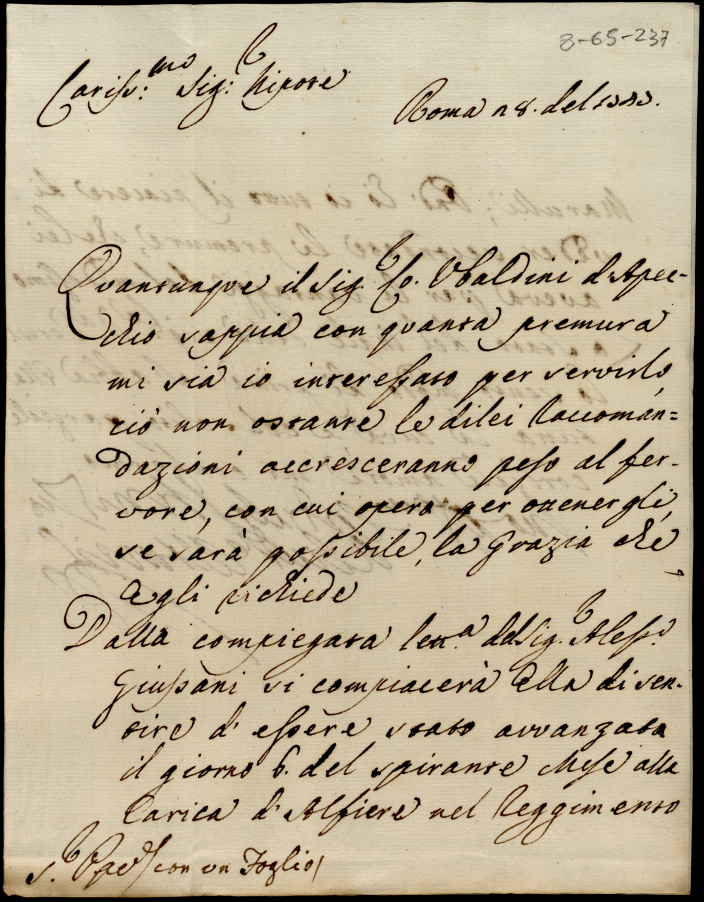 8-65-237
Cariss:mo Sig:r Nipote
Roma 28. del
Quantunque il Sig.r Co. Ubaldini d'Apec-
chio sappia con quanta premura
mi sia io interessato per servirlo,
ciò non ostante le dilei Raccoman=
dazioni accresceranno peso al fer-
vore, con cui opero per ottenergli,
se sarà possibile, la Grazia che
Egli richiede
Dalla compiegata lett.a del Sig.r Aless.o
Giussani si compiacerà Ella di sen-
tire d'essere stato avvanzato
il giorno 6. del spirante Mese alla
Carica d'Alfiere nel Reggimento
con un Foglio